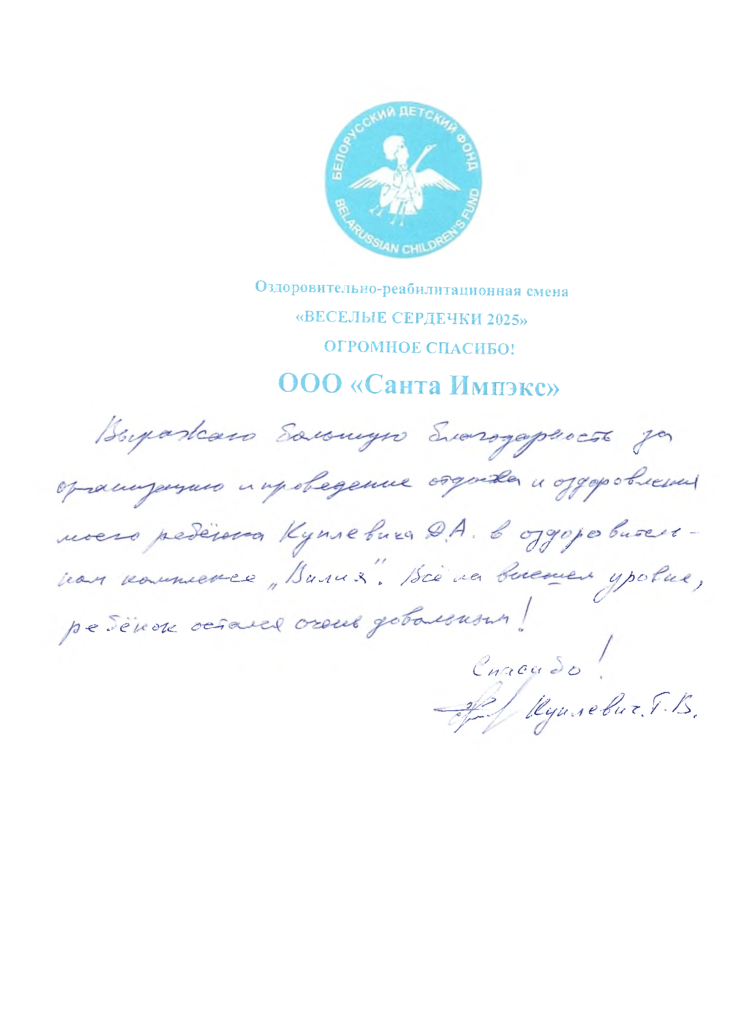 БЕЛОРУССКИЙ ДЕТСКИЙ ФОНД
BELARUSSIAN CHILDREN'S FUND
Оздоровительно-реабилитационная смена
«ВЕСЕЛЫЕ СЕРДЕЧКИ 2025»
ОГРОМНОЕ СПАСИБО!
ООО «Санта Импэкс»
Выражаю большую благодарность за
организацию и проведение отдыха и оздоровления
моего ребёнка Куплевича Д.А. в оздоровитель-
ном комплексе „Вилия". Всё на высшем уровне,
ребёнок остался очень довольным!
Спасибо!
Куплевич Т.В.